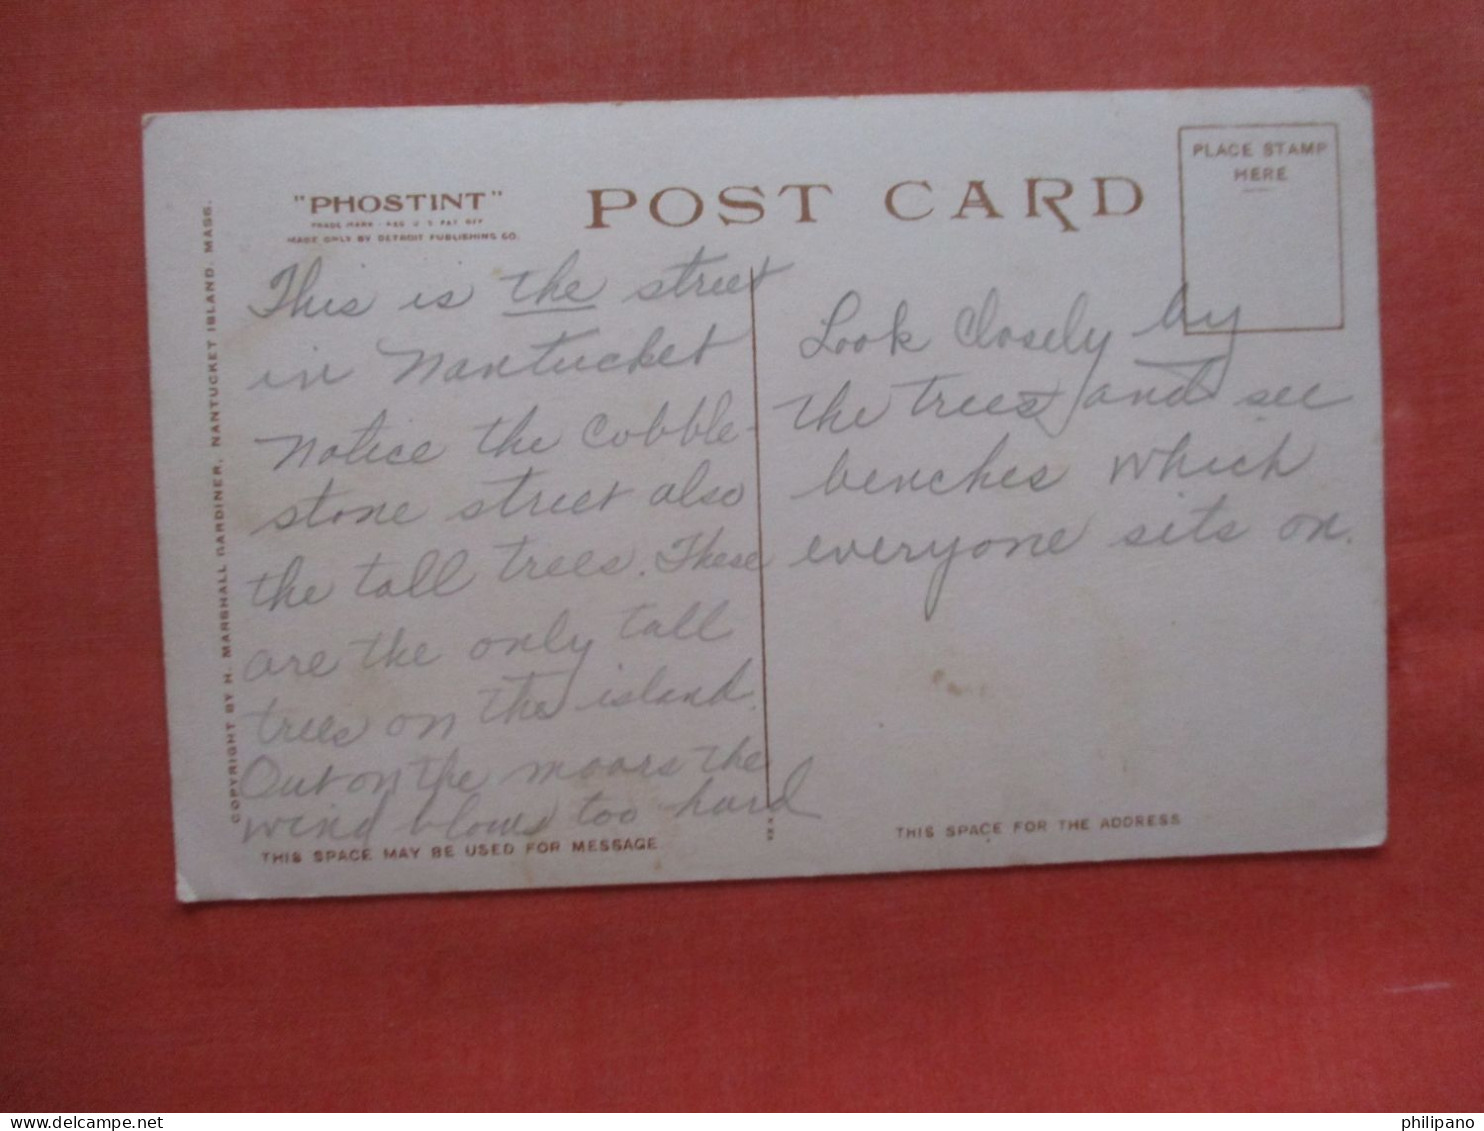 "PHOSTINT"
TRADE MARK - REG. U. S. PAT. OFF
MADE ONLY BY DETROIT PUBLISHING CO.
POST CARD
PLACE STAMP
HERE
COPYRIGHT BY H. MARSHALL GARDINER, NANTUCKET ISLAND, MASS.
This is the street
in Nantucket
Notice the Cobble-
stone street also
the tall trees. These
are the only tall
trees on the island.
Out on the moors the
wind blows too hard
Look closely by
the trees and see
benches which
everyone sits on.
THIS SPACE MAY BE USED FOR MESSAGE
THIS SPACE FOR THE ADDRESS
philipano
www.delcampe.net